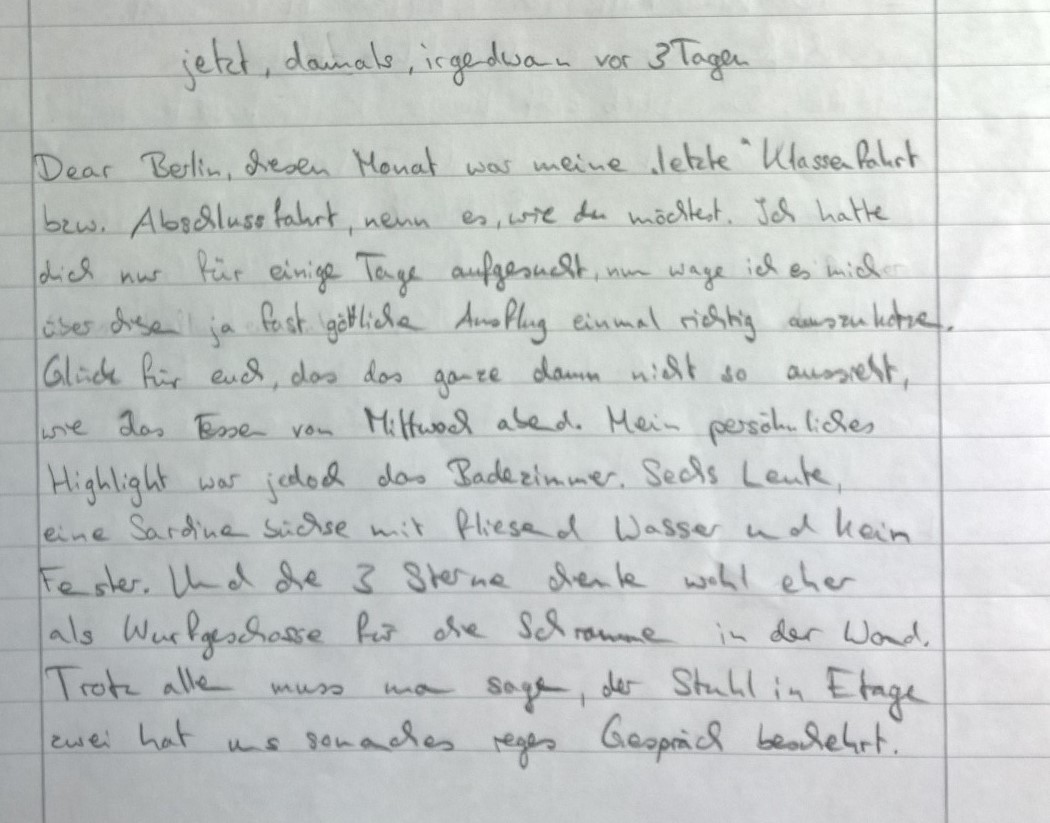 jetzt, damals, irgendwan vor 3 Tagen
Dear Berlin, diesen Monat war meine "letzte" Klassenfahrt
bzw. Abschlussfahrt, nenn es, wie du möchtest. Ich hatte
dich nur für einige Tage aufgesucht, nun wage ich es mich
über diese ja fast göttliche Ausflug einmal richtig auszukotze.
Glück für euch, das das ganze dann nicht so aussieht,
wie das Essen von Mittwoch abend. Mein persöhnliches
Highlight war jedoch das Badezimmer. Sechs Leute,
eine Sardine büchse mit fliesend Wasser und kein
Fester. Und die 3 Sterne diente wohl eher
als Wurfgeschosse für die Schramme in der Wand.
Trotz alle muss ma sage, der Stuhl in Etage
zwei hat uns so manches reges Gespräch beschehrt.